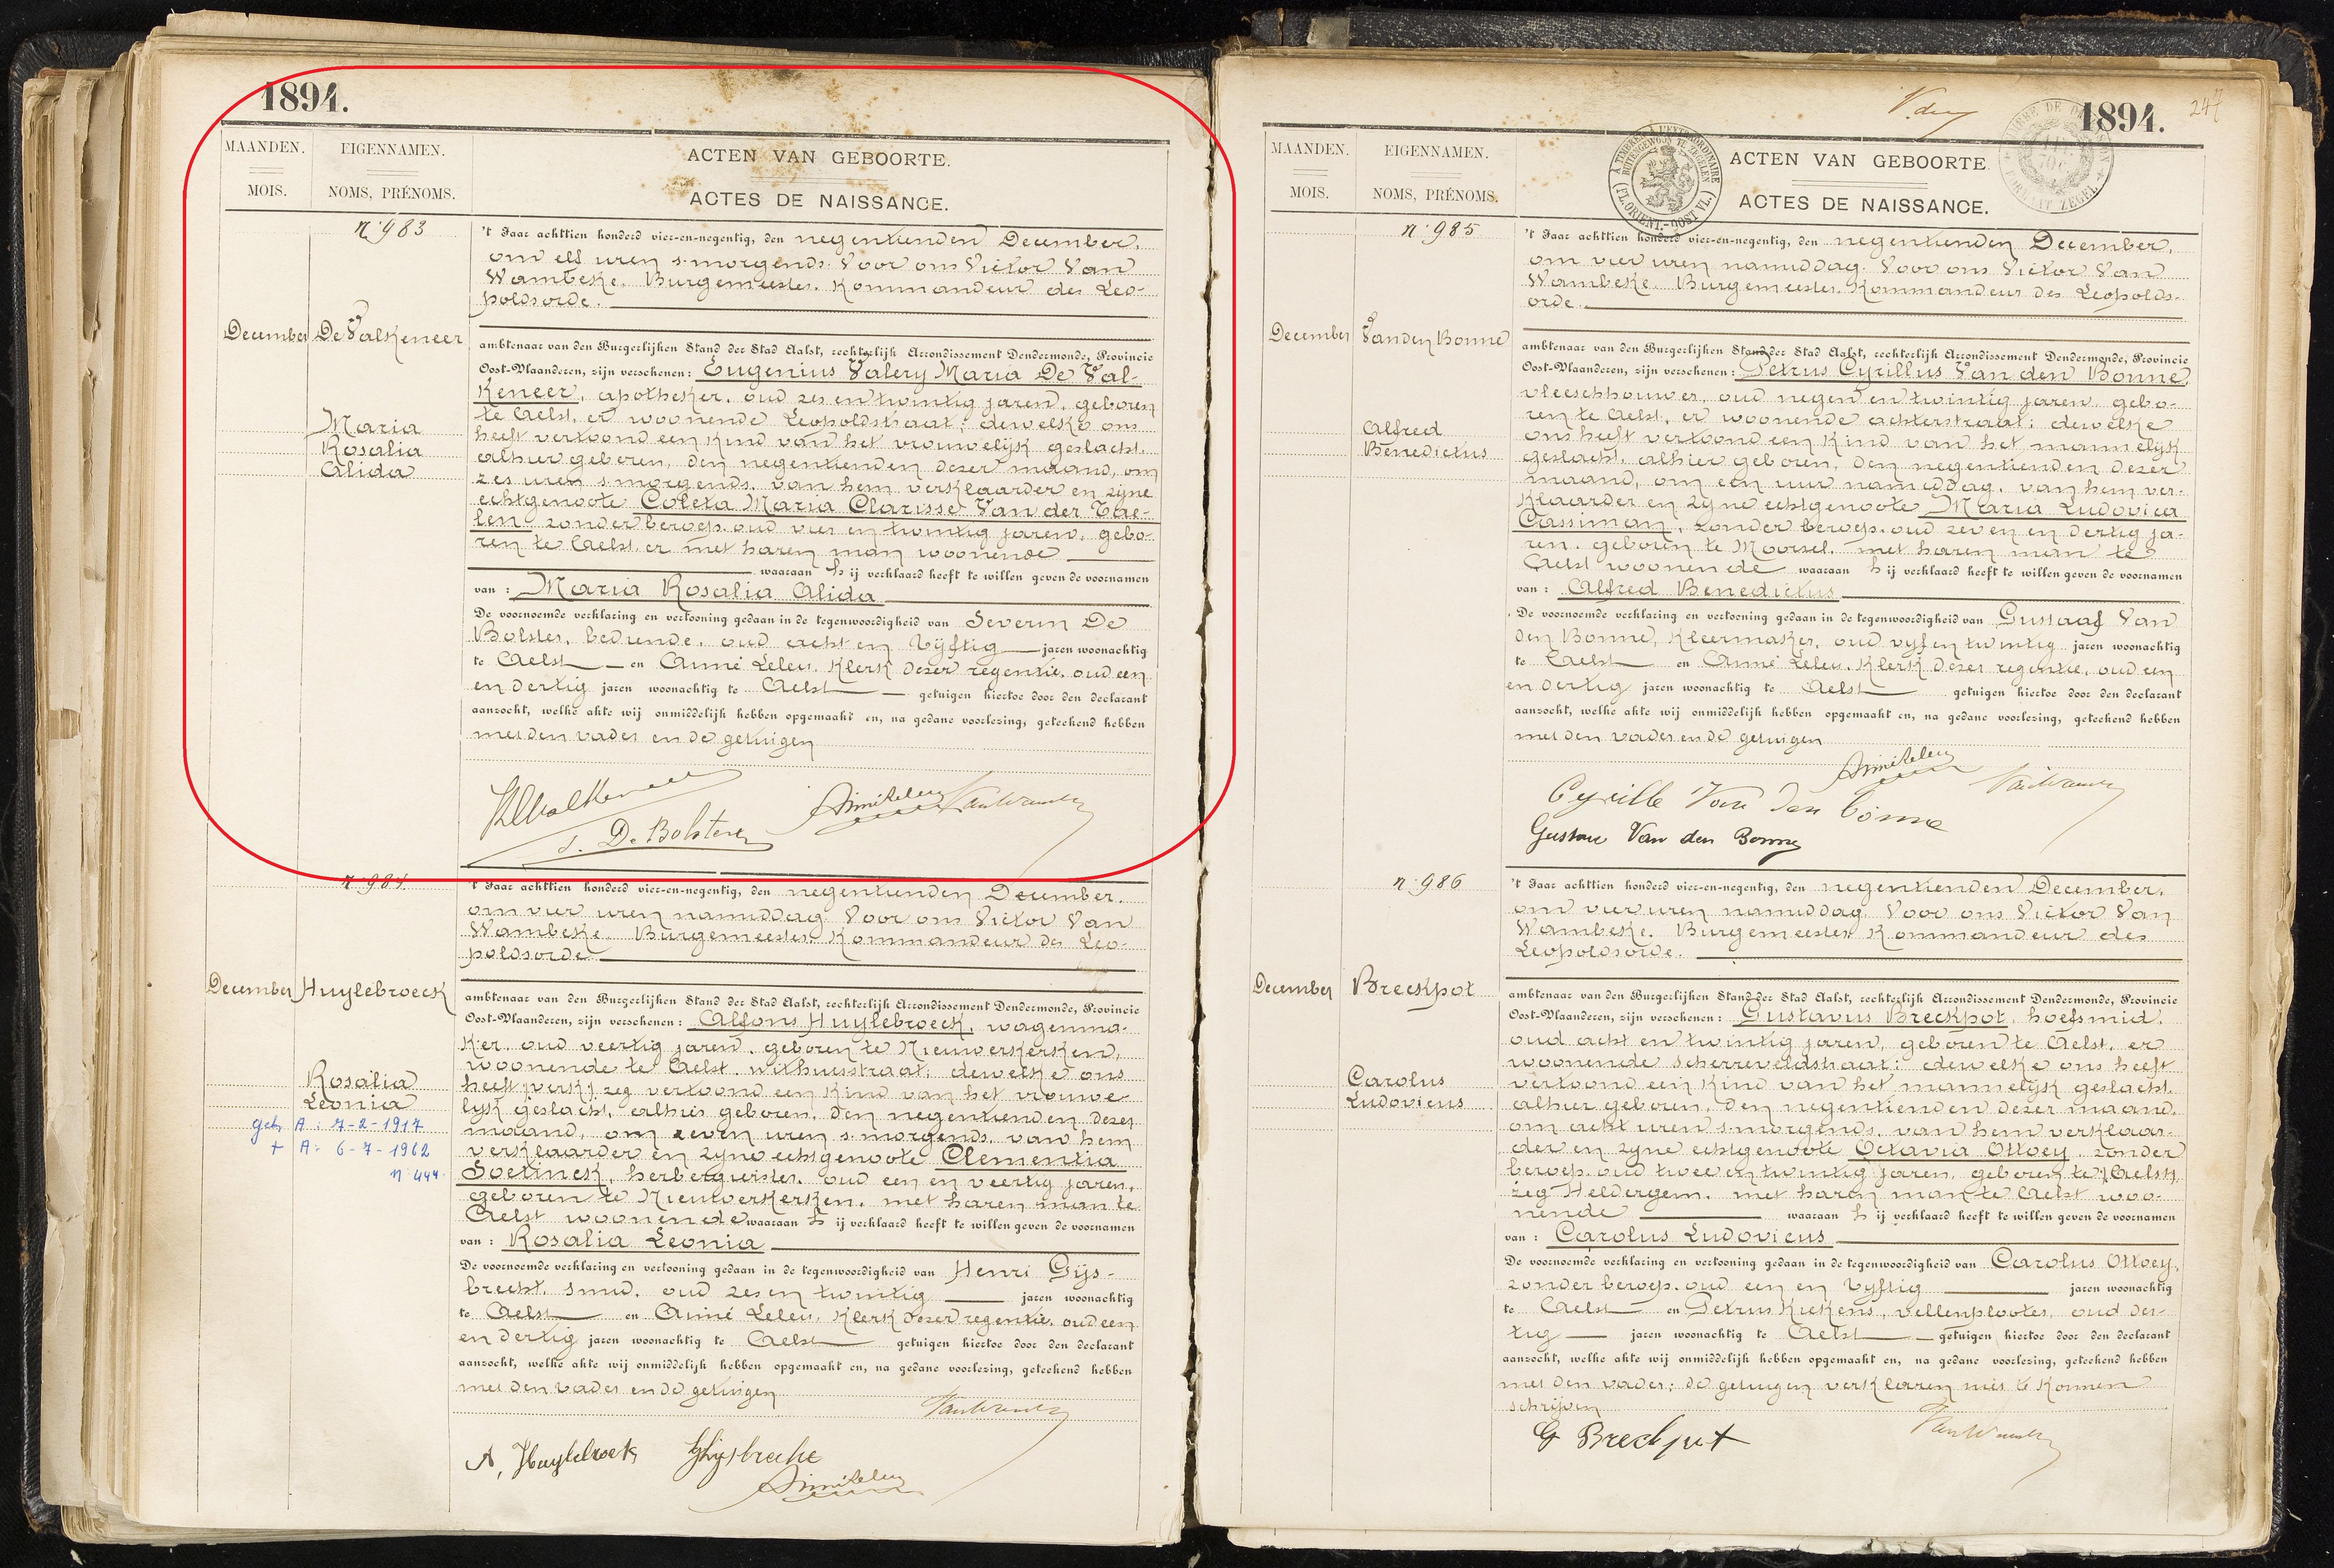 1894.
MAANDEN.
MOIS.
EIGENNAMEN.
NOMS, PRÉNOMS.
ACTEN VAN GEBOORTE.
ACTES DE NAISSANCE.
n° 983
December
De Valkeneer
Maria
Rosalia
Alida
't Jaar achttien honderd vier-en-negentig, den negentienden December,
om elf uren s'morgends. Voor ons Victor Van
Wambeke. Burgemeester. Kommandeur des Leo-
poldsorde.
ambtenaar van den Burgerlijken Stand der Stad Aalst, rechterlijk Arrondissement Dendermonde, Provincie
Oost-Vlaanderen, zijn verschenen: Eugenius Valery Maria De Val-
Keneer, apotheker, oud zes en twintig jaren, geboren
te Aelst, er woonende Leopoldstraat; dewelke ons
heeft vertoond een Kind van het vrouwelijk geslacht,
alhier geboren, den negentienden dezer maand, om
zes uren s'morgends, van hem verklaarder en zijne
echtgenoote Coleta Maria Clarisse Van der Tae-
len, zonder beroep, oud vier en twintig jaren, gebo-
ren te Aelst, er met haren man woonende
waaraan hij verklaard heeft te willen geven de voornamen
van: Maria Rosalia Alida
De voornoemde verklaring en vertooning gedaan in de tegenwoordigheid van Severin De
Bolster, bediende, oud acht en vijftig jaren woonachtig
te Aelst en Aimé Leleu, Klerk dezer regentie, oud een
en dertig jaren woonachtig te Aelst getuigen hiertoe door den declarant
aanzocht, welke akte wij onmiddelijk hebben opgemaakt en, na gedane voorlezing, geteekend hebben
met den vader en de getuigen
S. De Bolster
Aimé Leleu
VanWambeke
n° 984.
December
Huylebroeck
Rosalia
Leonia
geh. A: 7-2-1917
+ A: 6-7-1962
n° 444.
't Jaar achttien honderd vier-en-negentig, den negentienden December.
om vier uren namiddag. Voor ons Victor Van
Wambeke. Burgemeester. Kommandeur des Leo-
poldsorde.
ambtenaar van den Burgerlijken Stand der Stad Aalst, rechterlijk Arrondissement Dendermonde, Provincie
Oost-Vlaanderen, zijn verschenen: Alfons Huylebroeck, wagenma-
Ker, oud veertig jaren, geboren te Nieuwerkerken,
woonende te Aelst, withuisstraat; dewelke ons
heeft (verk) zeg vertoond een Kind van het vrouwe-
lijk geslacht, alhier geboren, den negentienden dezer
maand, om zeven uren s'morgends, van hem
verklaarder en zijne echtgenoote Clementia
Soetinck, herbergierster, oud een en veertig jaren,
geboren te Nieuwerkerken, met haren man te
Aelst woonende waaraan hij verklaard heeft te willen geven de voornamen
van: Rosalia Leonia
De voornoemde verklaring en vertooning gedaan in de tegenwoordigheid van Henri Gijs-
brecht, smid, oud zes en twintig jaren woonachtig
te Aelst en Aimé Leleu, Klerk dezer regentie, oud een
en dertig jaren woonachtig te Aelst getuigen hiertoe door den declarant
aanzocht, welke akte wij onmiddelijk hebben opgemaakt en, na gedane voorlezing, geteekend hebben
met den vader en de getuigen
VanWambeke
A. Huylebroeck
Aimé Leleu
1894.
MAANDEN.
MOIS.
EIGENNAMEN.
NOMS, PRÉNOMS.
ACTEN VAN GEBOORTE.
ACTES DE NAISSANCE.
n° 985
December
Van den Bonne
Alfred
Benedictus
't Jaar achttien honderd vier-en-negentig, den negentienden December,
om vier uren namiddag. Voor ons Victor Van
Wambeke. Burgemeester. Kommandeur des Leopolds-
orde.
ambtenaar van den Burgerlijken Stand der Stad Aalst, rechterlijk Arrondissement Dendermonde, Provincie
Oost-Vlaanderen, zijn verschenen: Petrus Cyrillus Van den Bonne,
vleeschhouwer, oud negen en twintig jaren, gebo-
ren te Aelst, er woonende achterstraat; dewelke
ons heeft vertoond een Kind van het mannelijk
geslacht, alhier geboren, den negentienden dezer
maand, om een uur namiddag, van hem ver-
klaarder en zijne echtgenoote Maria Ludovica
Cassiman, zonder beroep, oud zeven en dertig ja-
ren, geboren te Moorsel, met haren man te
Aelst woonende waaraan hij verklaard heeft te willen geven de voornamen
van: Alfred Benedictus
De voornoemde verklaring en vertooning gedaan in de tegenwoordigheid van Gustaaf Van
den Bonne, Kleermaker, oud vijf en twintig jaren woonachtig
te Aelst en Aimé Leleu, Klerk dezer regentie, oud een
en dertig jaren woonachtig te Aelst getuigen hiertoe door den declarant
aanzocht, welke akte wij onmiddelijk hebben opgemaakt en, na gedane voorlezing, geteekend hebben
met den vader en de getuigen
Aimé Leleu
VanWambeke
Cyrille Van den Bonne
Gustave Van den Bonne
n° 986
December
Breckpot
Carolus
Ludovicus
't Jaar achttien honderd vier-en-negentig, den negentienden December,
om vier uren namiddag. Voor ons Victor Van
Wambeke. Burgemeester Kommandeur des
Leopoldsorde.
ambtenaar van den Burgerlijken Stand der Stad Aalst, rechterlijk Arrondissement Dendermonde, Provincie
Oost-Vlaanderen, zijn verschenen: Gustavus Breckpot, hoefsmid,
oud acht en twintig jaren, geboren te Aelst, er
woonende Scherreveldstraat; dewelke ons heeft
vertoond een Kind van het mannelijk geslacht,
alhier geboren, den negentienden dezer maand,
om acht uren s'morgends, van hem verklaar-
der en zijne echtgenoote Octavia Ottoey, zonder
beroep, oud twee en twintig jaren, geboren te (Aelst)
zeg Heldergem, met haren man te Aelst woo-
nende waaraan hij verklaard heeft te willen geven de voornamen
van: Carolus Ludovicus
De voornoemde verklaring en vertooning gedaan in de tegenwoordigheid van Carolus Ottoey,
zonder beroep, oud een en vijftig jaren woonachtig
te Aelst en Petrus Kiekens, vellenplooter, oud der-
tig jaren woonachtig te Aelst getuigen hiertoe door den declarant
aanzocht, welke akte wij onmiddelijk hebben opgemaakt en, na gedane voorlezing, geteekend hebben
met den vader; de getuigen verklaren niet te konnen
schrijven
G Breckpot
VanWambeke